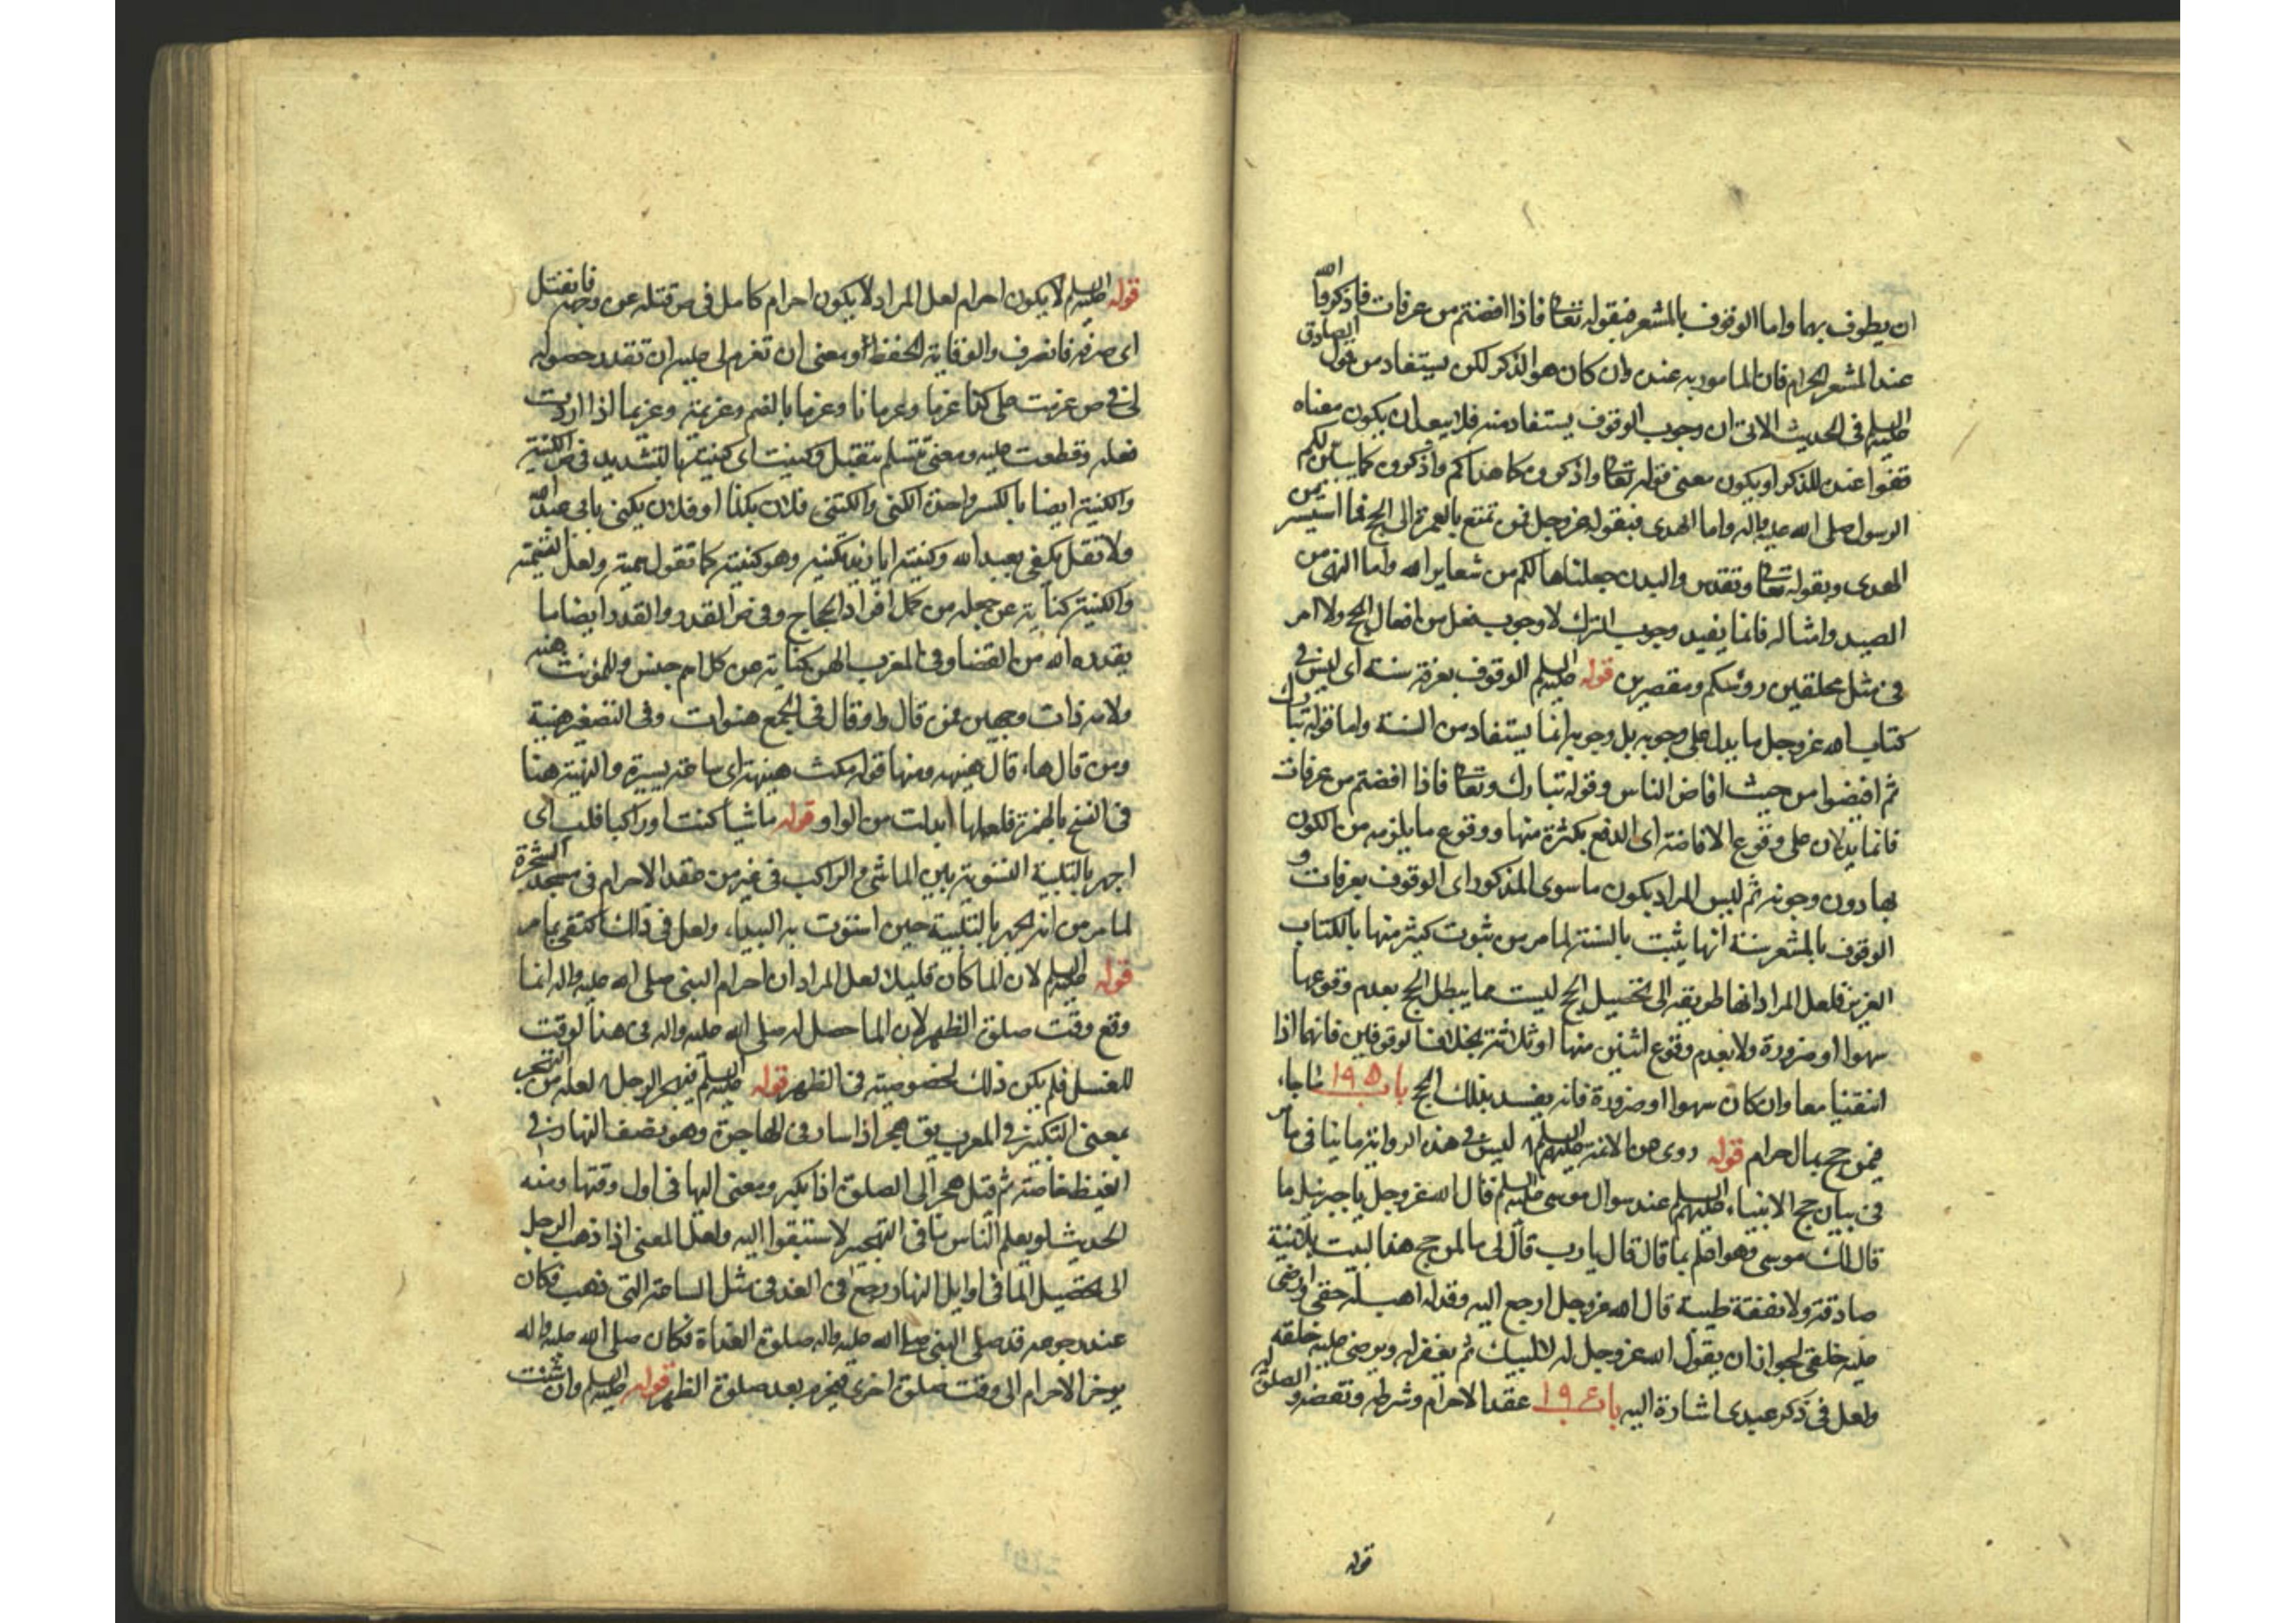 ان يطوف بهما واما الوقوف بالمشعر فبقوله تعالى فاذا افضتم من عرفات فاذكروا الله
عند المشعر الحرام فان المامور به عنده وان كان هو الذكر لكن يستفاد من قول الصادق
عليه السلم فى الحديث الاتى ان وجوب الوقوف يستفاد منه فلا يبعد ان يكون معناه
قفوا عنده للذكر او يكون معنى قوله تعالى واذكروه كما هداكم واذكروه كما بين لكم
الرسول صلى الله عليه واله واما الهدى فبقوله عز وجل فمن تمتع بالعمرة الى الحج فما استيسر من
الهدى وبقوله تعالى وتقدس والبدن جعلناها لكم من شعاير الله واما النهى من
الصيد وامثاله فانما يفيد وجوب الترك لا وجوب فعل من افعال الحج ولا امر
فى مثل محلقين رؤسكم ومقصرين قوله عليه السلم الوقوف بعرفة سنة اى ليس فى
كتاب الله عز وجل ما يدل على وجوبه بل وجوبه انما يستفاد من السنة واما قوله تبارك
ثم افيضوا من حيث افاض الناس وقوله تبارك وتعالى فاذا افضتم من عرفات
فانما يدلان على وقوع الافاضة اى الدفع بكثرة منها ووقوع ما يلزمه من الكون
بها دون وجوبه ثم ليس المراد بكون ما سوى المذكور اى الوقوف بعرفات و
الوقوف بالمشعر سنة انها يثبت بالسنة لما مر من ثبوت كثير منها بالكتاب
العزيز فلعل المراد انها طريقة الى تحصيل الحج ليست مما يبطل الحج بعدم وقوعها
سهوا او ضرورة ولا بعدم وقوع اثنين منها او ثلاثة بخلاف الوقوفين فانهما اذا
انتفيا معا وان كان سهوا او ضرورة فانه يفسد بذلك الحج باب ١٩٥ ما جاء
فيمن حج بمال حرام قوله روى عن الائمة عليهم السلم ليس فى هذه الرواية ما ينافى ما مر
فى بيان حج الانبياء عليهم السلم عند سوال موسى عليه السلم قال الله عز وجل يا جبرئيل ما
قال لك موسى وهو اعلم بما قال قال يا رب قال لى ما لمن حج هذا البيت بلا نية
صادقة ولا نفقة طيبة قال الله عز وجل ارجع اليه وقل له اهب له حقى وارضى
عليه خلقى لجواز ان يقول الله عز وجل له لا لبيك ثم يغفر له ويرضى عليه خلقه
ولعل فى ذكر عبدى اشارة اليه باب ١٩٤ عقد الاحرام وشرطه ونقضه والصلوة له
قوله
قوله عليه السلم لا يكون احرام لعل المراد لا يكون احرام كامل فى ص فتله عن وجهه فانفتل
اى صرفه فانصرف والوقاية الحفظ ومعنى ان تعزم لى عليه ان تقدر حصوله
لى فى ص عزمت على كذا عزما وعزمانا وعزما بالضم وعزيمة وعزيما اذا اردت
فعله وقطعت عليه ومعنى تتسلم تتقبل وكنيت اى كنيتها بالتشديد فى ص الكنية
والكنية ايضا بالكسر واحدة الكنى واكتنى فلان بكذا او فلان يكنى بابى عبد الله
ولا تقل يكنى بعبد الله وكنيته ابا زيد تكنية وهو كنيته كما تقول سمية ولعل التسمية
والكنية كناية عن جعله من كمل افراد الحجاج وفى ص القدر والقدر ايضا ما
يقدره الله من القضا وفى المغرب الهن كناية عن كل اسم جنس وللمؤنث هنه
ولامه ذات وجهين فمن قال واو قال فى الجمع هنوات وفى التصغير هنية
ومن قال هاء قال هنيهه ومنها قوله مكث هنيهة اى ساعة يسيرة والهنية هنا
فى النسخ بالهمزة فلعلها ابدلت من الواو قوله ماشيا كنت او راكبا فلب اى
اجهر بالتلبية التسوية بين الماشى والراكب فى غير من عقد الاحرام فى مسجد الشجرة
لما مر من انه الجهر بالتلبية حين استوت به البيداء ولعل فى ذلك اكتفى بما مر
قوله عليه السلم لان الما كان قليلا لعل المراد ان احرام النبى صلى الله عليه واله انما
وقع وقت صلوة الظهر لان الما حصل له صلى الله عليه واله فى هذا الوقت
للغسل فلم يكن ذلك لخصوصية فى الظهر قوله عليه السلم فيهجر الرجل لعله من التهجير
بمعنى التبكير فى المغرب يق هجر اذا سار فى الهاجرة وهو نصف النهار فى
القيظ خاصة ثم قيل هجر الى الصلوة اذا بكر ومعنى اليها فى اول وقتها ومنه
الحديث لو يعلم الناس ما فى التهجير لاستبقوا اليه ولعل المعنى اذا ذهب الرجل
الى تحصيل الما فى اوايل النهار يرجع فى الغد فى مثل الساعة التى ذهب فكان
عند رجوعه قد صلى النبى صلى الله عليه واله صلوة الغداة فكان صلى الله عليه واله
يوخر الاحرام الى وقت صلوة اخرى فيحرم بعد صلوة الظهر قوله عليه السلم وان شئت